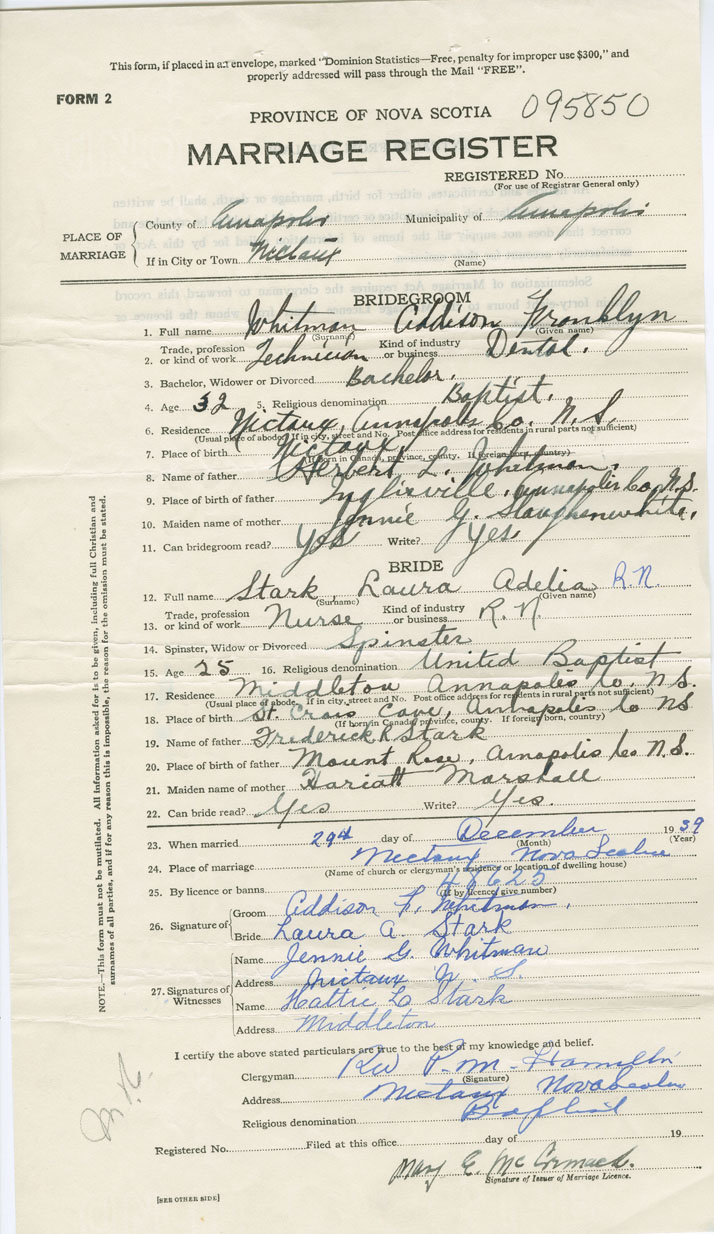 This form, if placed in an envelope, marked "Dominion Statistics—Free, penalty for improper use $300," and
properly addressed will pass through the Mail "FREE".
FORM 2
PROVINCE OF NOVA SCOTIA 095850
MARRIAGE REGISTER
REGISTERED No.
(For use of Registrar General only)
PLACE OF MARRIAGE
County of Annapolis Municipality of Annapolis
If in City or Town Nictaux
(Name)
BRIDEGROOM
1. Full name Whitman Addison Franklyn
(Surname) (Given name)
2. Trade, profession or kind of work Technician Kind of industry or business Dental.
3. Bachelor, Widower or Divorced Bachelor.
4. Age 32 5. Religious denomination Baptist.
6. Residence Nictaux, Annapolis Co. N.S.
(Usual place of abode. If in city, street and No. Post office address for residents in rural parts not sufficient)
7. Place of birth Nictaux
(If born in Canada, province, county. If foreign born, country)
8. Name of father Herbert L. Whitman.
9. Place of birth of father Inglisville, Annapolis Co. N.S.
10. Maiden name of mother Jennie G. Slaughenwhite.
11. Can bridegroom read? Yes Write? Yes
BRIDE
12. Full name Stark, Laura Adelia R.N.
(Surname) (Given name)
13. Trade, profession or kind of work Nurse Kind of industry or business R.N.
14. Spinster, Widow or Divorced Spinster
15. Age 25 16. Religious denomination United Baptist
17. Residence Middleton Annapolis Co. N.S.
(Usual place of abode. If in city, street and No. Post office address for residents in rural parts not sufficient)
18. Place of birth St. Croix Cove, Annapolis Co NS
(If born in Canada, province, county. If foreign born, country)
19. Name of father Frederick R Stark
20. Place of birth of father Mount Rose, Annapolis Co N.S.
21. Maiden name of mother Hariatt Marshall
22. Can bride read? Yes Write? Yes.
23. When married 29th day of December 1939
(Month) (Year)
24. Place of marriage Nictaux Nova Scotia
(Name of church or clergyman's residence or location of dwelling house)
25. By licence or banns 48625
(If by licence, give number)
26. Signature of
Groom Addison F. Whitman.
Bride Laura A. Stark
27. Signatures of Witnesses
Name Jennie G. Whitman
Address Nictaux N. S.
Name Hattie L Stark
Address Middleton
I certify the above stated particulars are true to the best of my knowledge and belief.
Clergyman Rev P. M. Hamilton
(Signature)
Address Nictaux Nova Scotia
Religious denomination Baptist
Registered No. Filed at this office day of 19
Mary E. McCormack.
Signature of Issuer of Marriage Licence.
[SEE OTHER SIDE]
NOTE.—This form must not be mutilated. All information asked for is to be given, including full Christian and
surnames of all parties, and if for any reason this is impossible, the reason for the omission must be stated.